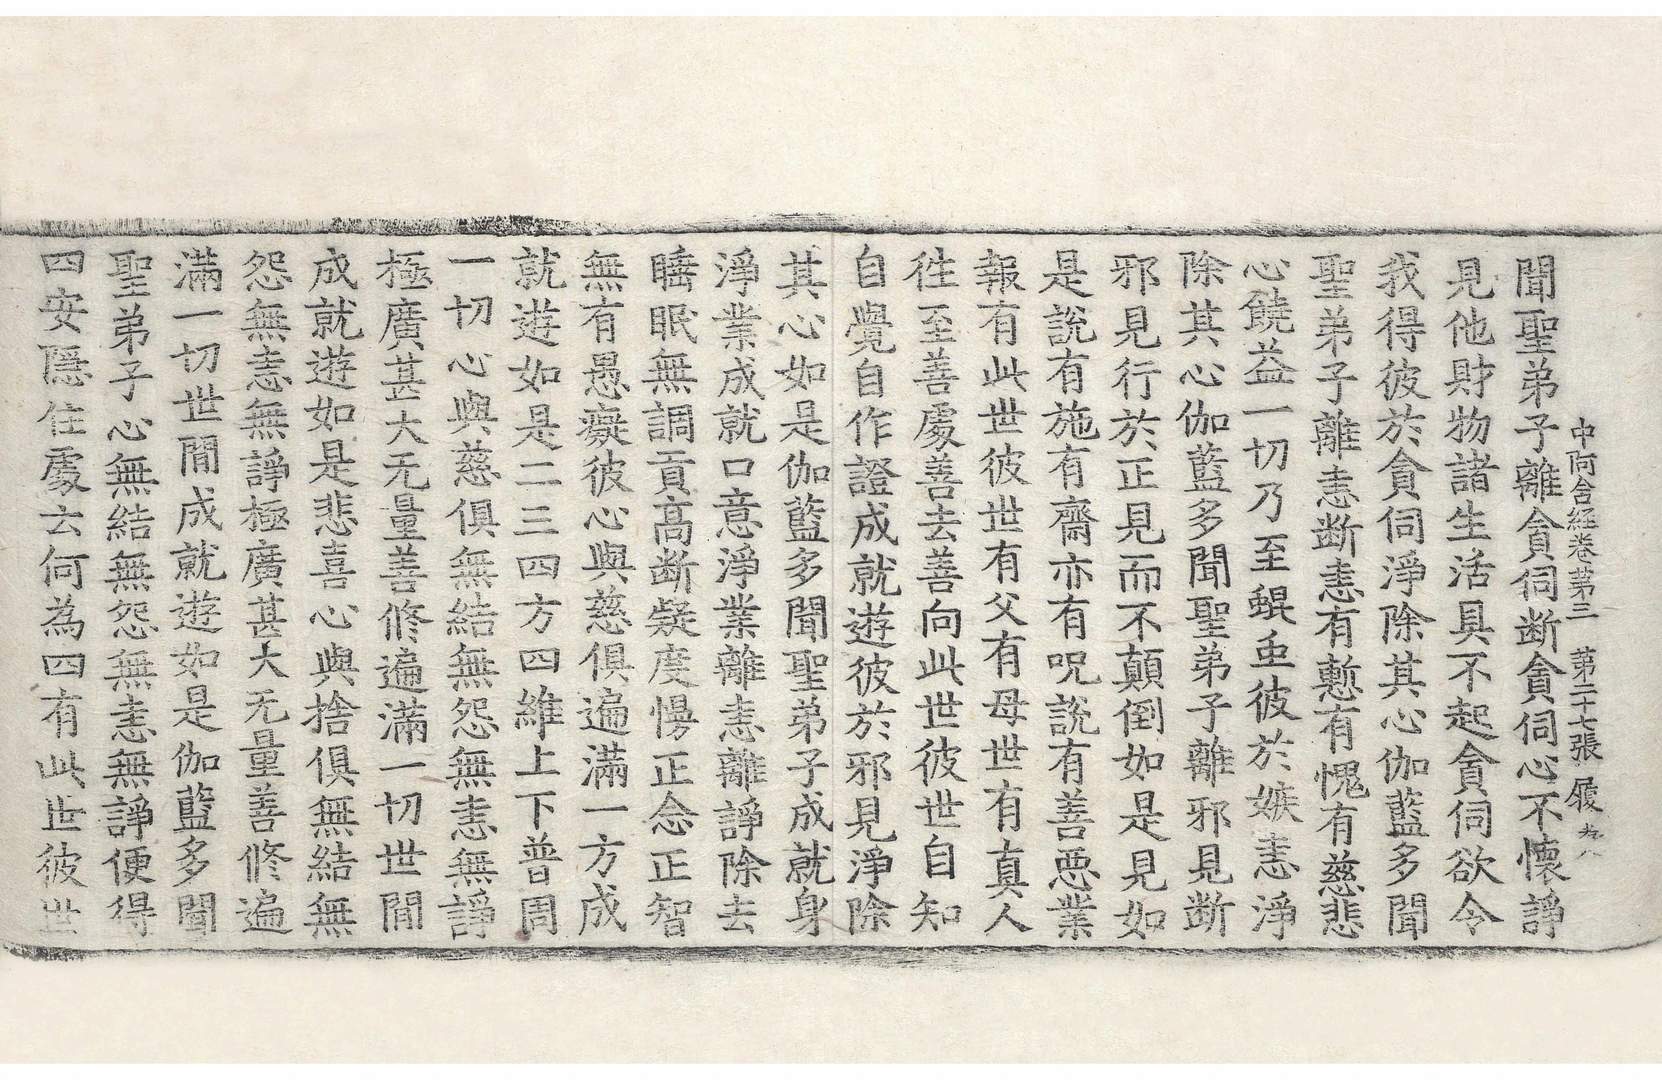 中阿含經卷第三　第二十七張　履
聞聖弟子離貪伺断貪伺心不懷諍
見他財物諸生活具不起貪伺欲令
我得彼於貪伺淨除其心伽藍多聞
聖弟子離恚断恚有慙有愧有慈悲
心饒益一切乃至蜫虫彼於嫉恚淨
除其心伽藍多聞聖弟子離邪見断
邪見行於正見而不顛倒如是見如
是說有施有齋亦有呪說有善惡業
報有此世彼世有父有母世有真人
徃至善處善去善向此世彼世自知
自覺自作證成就遊彼於邪見淨除
其心如是伽藍多聞聖弟子成就身
淨業成就口意淨業離恚離諍除去
睡眠無調貢高断疑度慢正念正智
無有愚癡彼心與慈俱遍滿一方成
就遊如是二三四方四維上下普周
一切心與慈俱無結無怨無恚無諍
極廣甚大无量善修遍滿一切世間
成就遊如是悲喜心與捨俱無結無
怨無恚無諍極廣甚大无量善修遍
滿一切世間成就遊如是伽藍多聞
聖弟子心無結無怨無恚無諍便得
四安隱住處云何為四有此世彼世